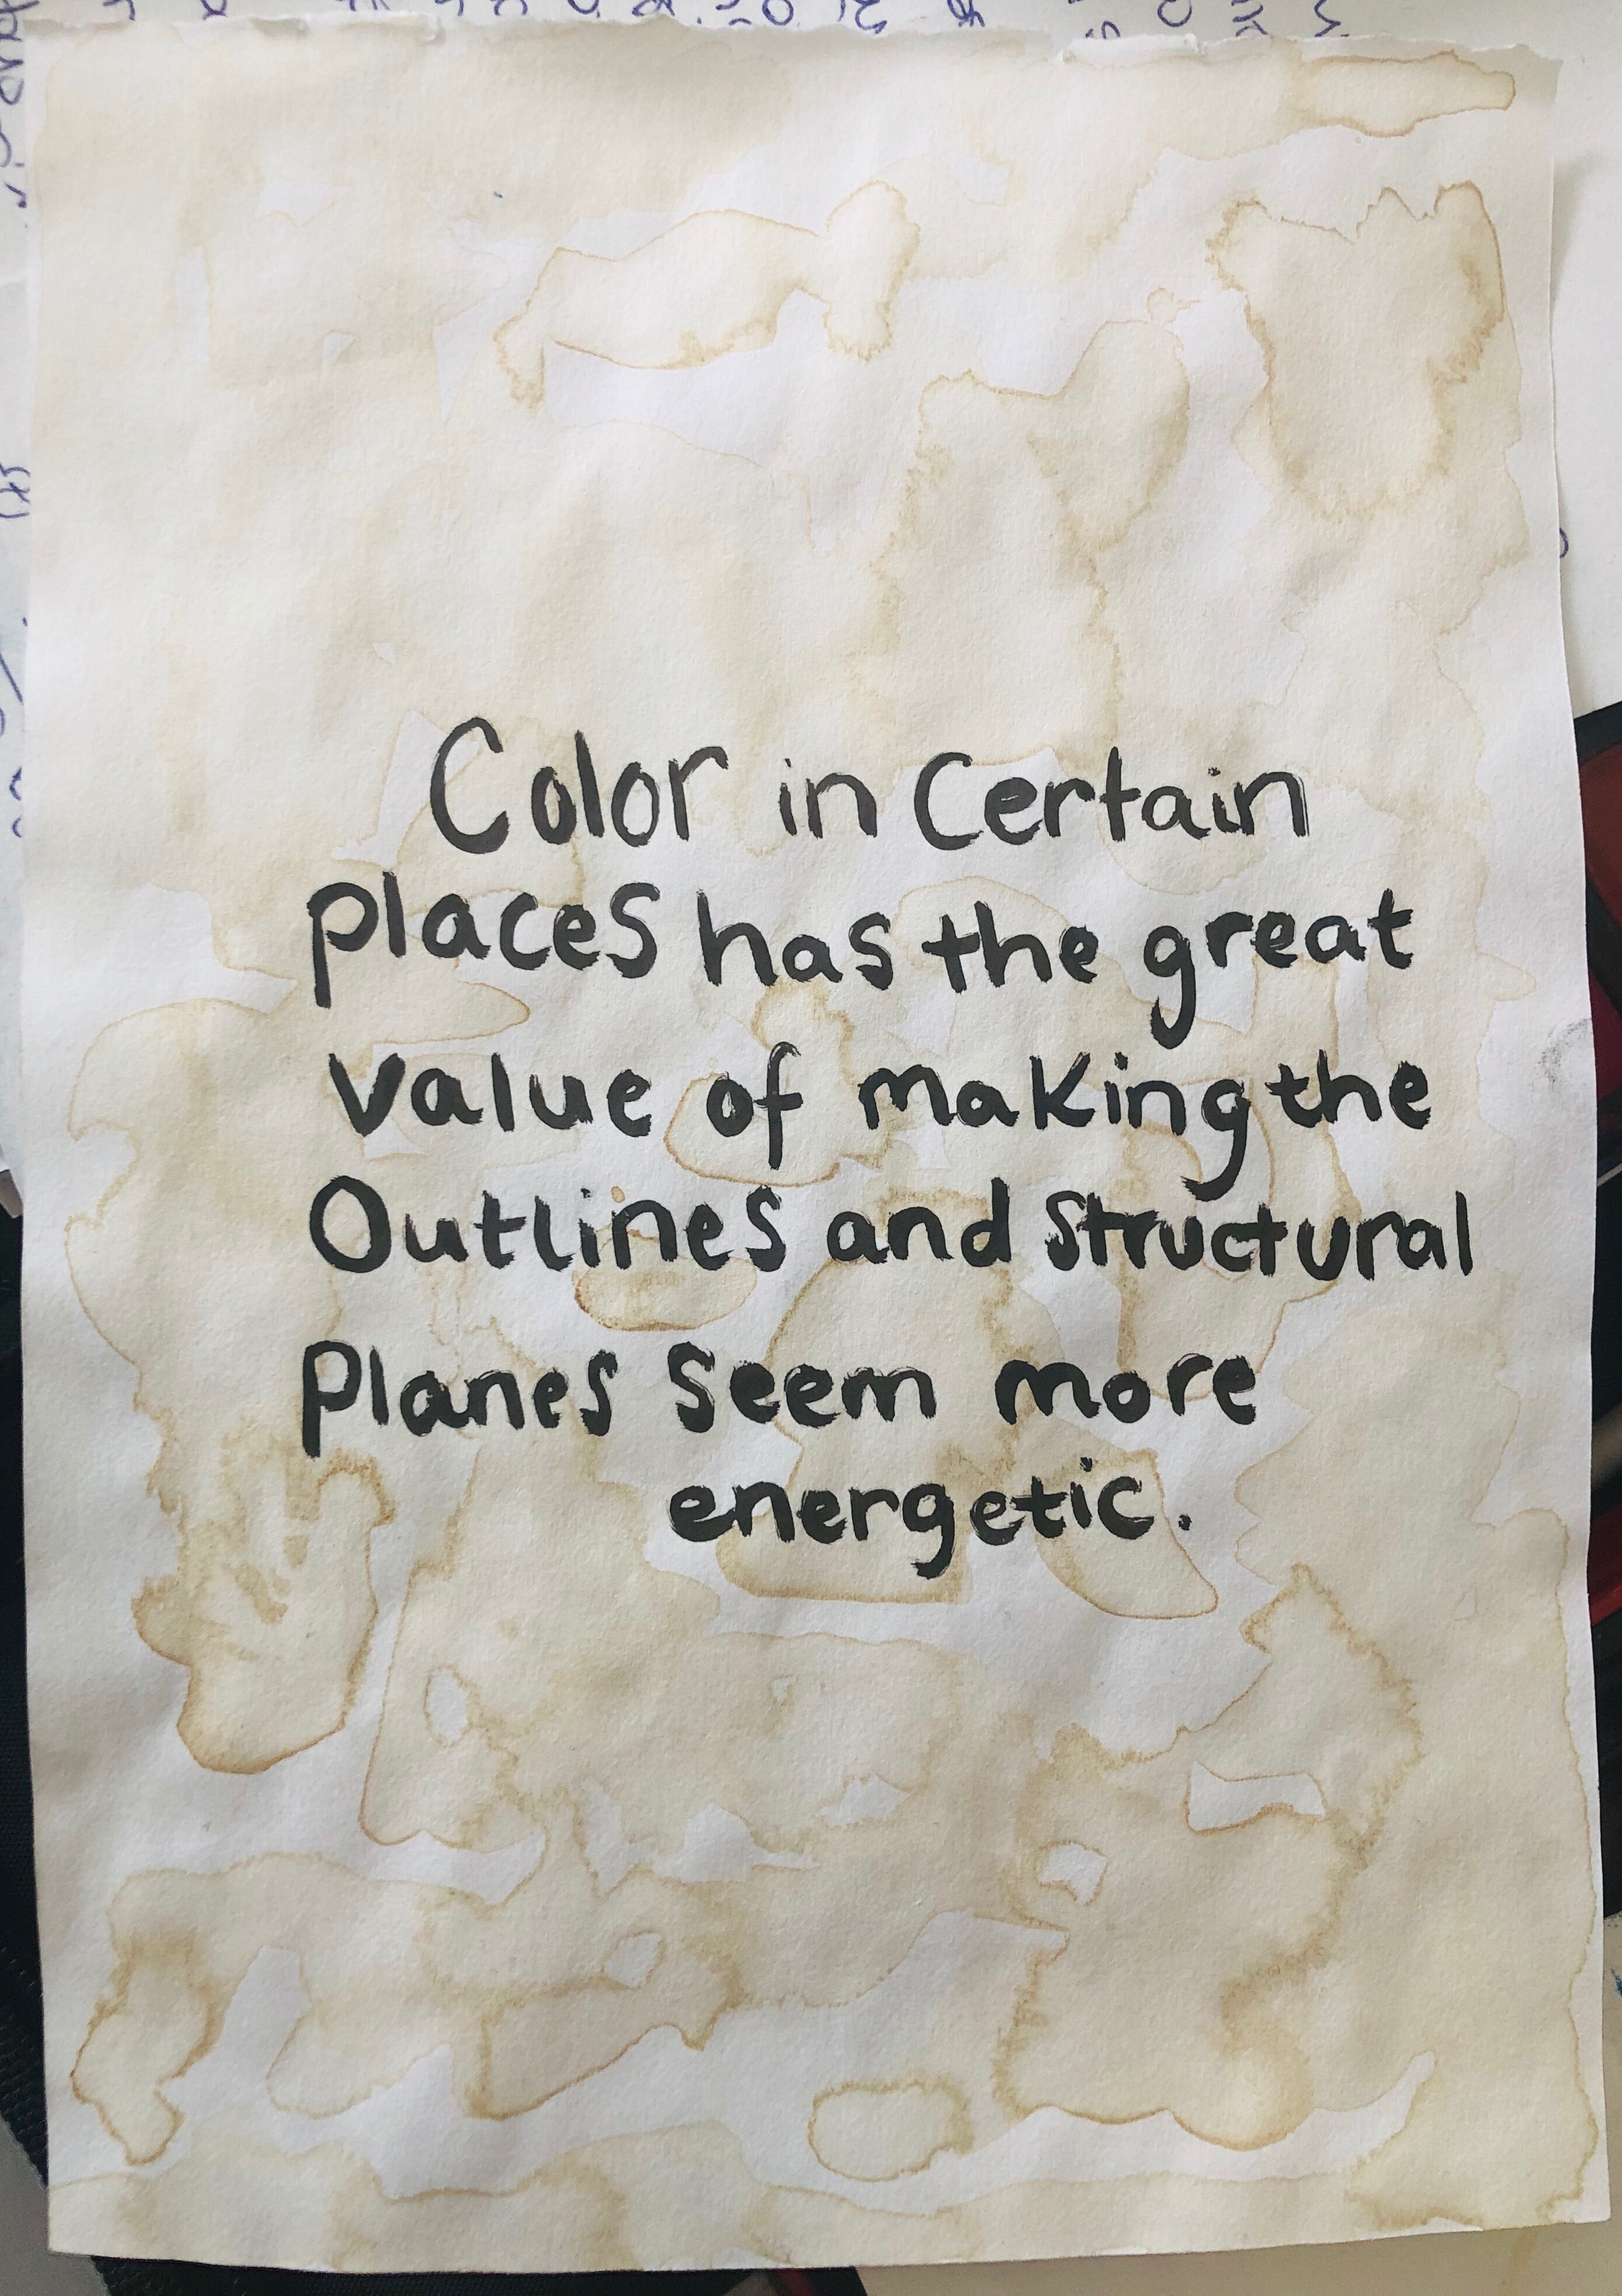 Color in Certain
places has the great
value of making the
Outlines and structural
Planes seem more
energetic.